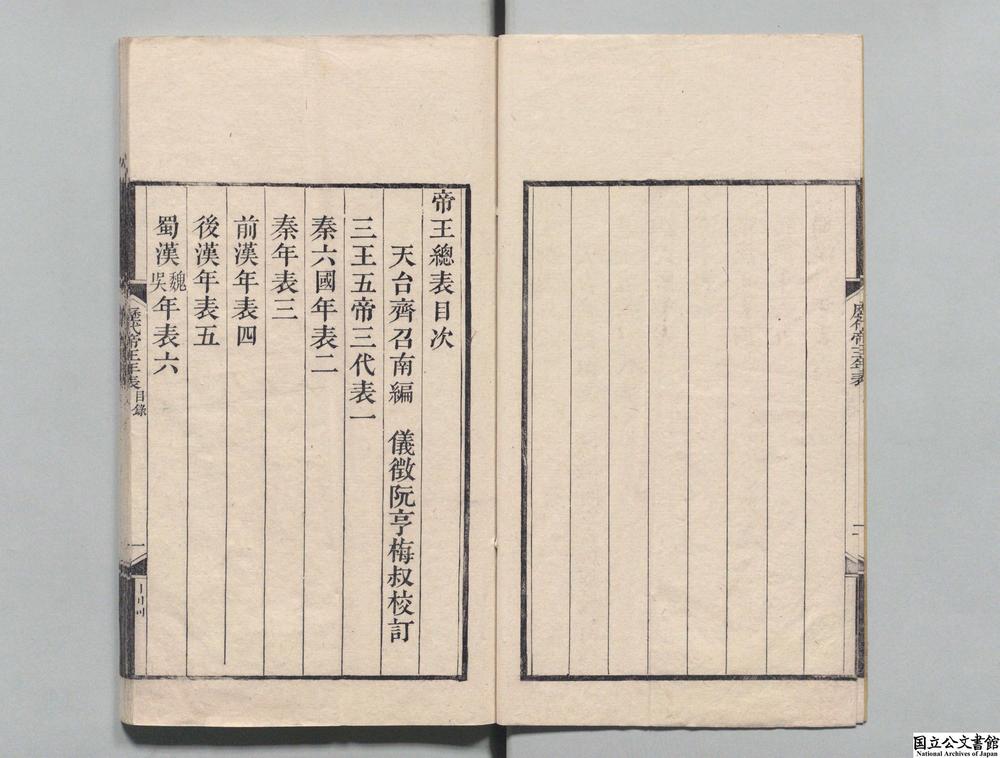 歷代帝王年表
帝王總表目次
天台齊召南編　儀徵阮亨梅叔校訂
三王五帝三代表一
秦六國年表二
秦年表三
前漢年表四
後漢年表五
蜀漢魏吳年表六
歷代帝王年表 目錄
一
国立公文書館
National Archives of Japan